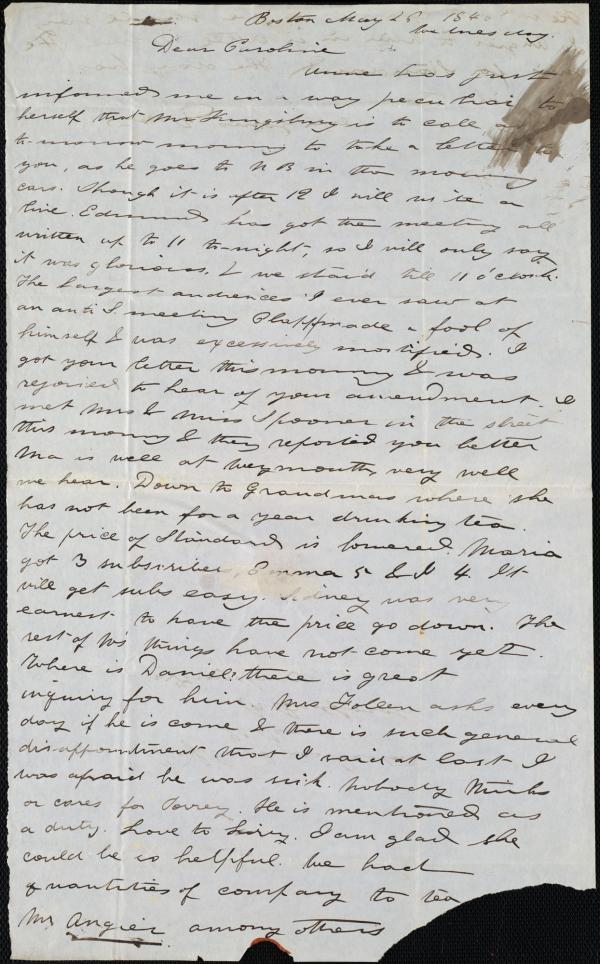 Boston May 28 184
Wednesday.
Dear Caroline
Anne has just
informed me in a way peculiar to
herself that Mr Kingsbury is to call
to-morrow morning to take a letter to
you, as he goes to N B in the morning
cars. Though it is after 12 I will write a
line. Edmund has got the meeting all
written up to 11 to-night, so I will only say
it was glorious, & we staid till 11 o'clock.
The largest audiences I ever saw at
an anti S. meeting Clapp made a fool of
himself & was excessively mortified. I
got your letter this morning & was
rejoiced to hear of your amendment. I
met Mrs & Miss Spooner in the street
this morning & they reported you better
Ma is well at Weymouth, very well
we hear. Down to Grandmas where she
has not been for a year drinking tea.
The price of Standard is lowered. Maria
got 3 subscribers, Emma 5 & I 4. It
will get subs easy. Sidney was very
earnest to have the price go down. The
rest of W's things have not come yet.
Where is Daniel? there is great
inquiry for him. Mrs Follen asks every
day if he is come & there is such general
disappointment that I said at last I
was afraid he was sick. Nobody thinks
or cares for Torrey. He is mentioned as
a duty. Love to Lizzy. I am glad she
could be so helpful. We had
quantities of company to tea
Mr Angier among others